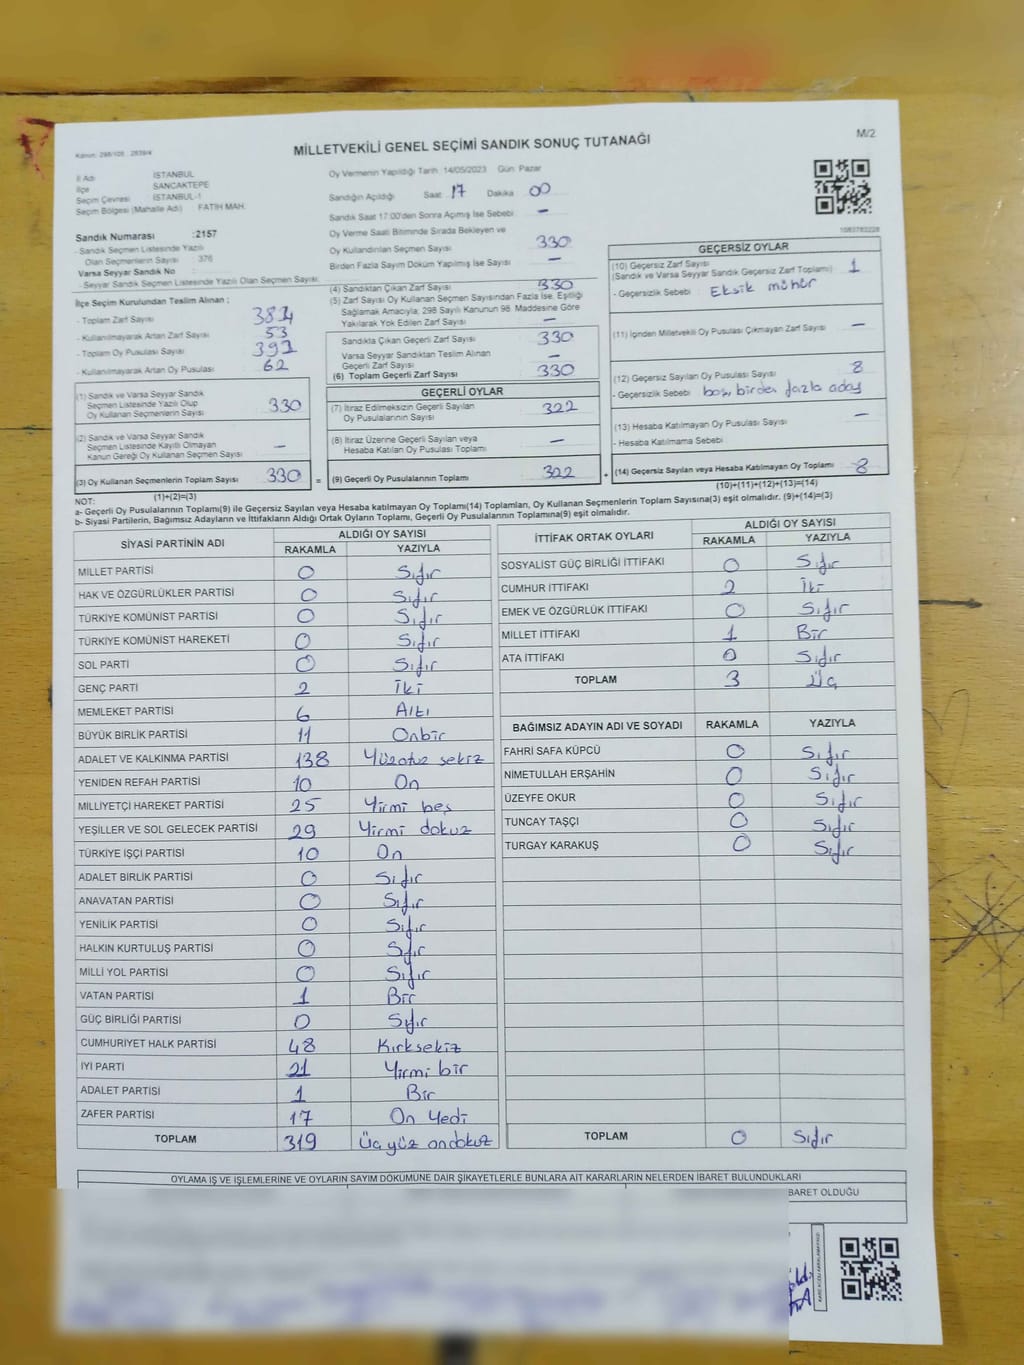 Kanun: 298/105 , 2839/4
MİLLETVEKİLİ GENEL SEÇİMİ SANDIK SONUÇ TUTANAĞI
M/2
İl Adı İSTANBUL
İlçe SANCAKTEPE
Seçim Çevresi İSTANBUL-1
Seçim Bölgesi (Mahalle Adı) : FATİH MAH.
Sandık Numarası :2157
- Sandık Seçmen Listesinde Yazılı
Olan Seçmenlerin Sayısı 376
Varsa Seyyar Sandık No :
- Seyyar Sandık Seçmen Listesinde Yazılı Olan Seçmen Sayısı:
İlçe Seçim Kurulundan Teslim Alınan ;
- Toplam Zarf Sayısı
- Kullanılmayarak Artan Zarf Sayısı 53
- Toplam Oy Pusulası Sayısı
- Kullanılmayarak Artan Oy Pusulası 62
(1) Sandık ve Varsa Seyyar Sandık
Seçmen Listesinde Yazılı Olup
Oy Kullanan Seçmenlerin Sayısı 330
(2) Sandık ve Varsa Seyyar Sandık
Seçmen Listesinde Kayıtlı Olmayan
Kanun Gereği Oy Kullanan Seçmen Sayısı -
(3) Oy Kullanan Seçmenlerin Toplam Sayısı 330 =
(1)+(2)=(3)
Oy Vermenin Yapıldığı Tarih :14/05/2023 Gün: Pazar
Sandığın Açıldığı Saat 17 Dakika 00
Sandık Saat 17:00'den Sonra Açımış İse Sebebi -
Oy Verme Saati Bitiminde Sırada Bekleyen ve
Oy Kullandırılan Seçmen Sayısı 330
Birden Fazla Sayım Döküm Yapılmış İse Sayısı -
(4) Sandıktan Çıkan Zarf Sayısı 330
(5) Zarf Sayısı Oy Kullanan Seçmen Sayısından Fazla İse, Eşitliği
Sağlamak Amacıyla; 298 Sayılı Kanunun 98. Maddesine Göre
Yakılarak Yok Edilen Zarf Sayısı -
Sandıkta Çıkan Geçerli Zarf Sayısı 330
Varsa Seyyar Sandıktan Teslim Alınan
Geçerli Zarf Sayısı -
(6) Toplam Geçerli Zarf Sayısı 330
GEÇERLİ OYLAR
(7) İtiraz Edilmeksizin Geçerli Sayılan
Oy Pusulalarının Sayısı 322
(8) İtiraz Üzerine Geçerli Sayılan veya
Hesaba Katılan Oy Pusulası Toplamı -
(9) Geçerli Oy Pusulalarının Toplamı 322 +
1083782228
GEÇERSİZ OYLAR
(10) Geçersiz Zarf Sayısı
(Sandık ve Varsa Seyyar Sandık Geçersiz Zarf Toplamı) 1
- Geçersizlik Sebebi : Eksik mühür
(11) İçinden Milletvekili Oy Pusulası Çıkmayan Zarf Sayısı -
(12) Geçersiz Sayılan Oy Pusulası Sayısı 8
- Geçersizlik Sebebi boş, birden fazla aday
(13) Hesaba Katılmayan Oy Pusulası Sayısı -
- Hesaba Katılmama Sebebi
(14) Geçersiz Sayılan veya Hesaba Katılmayan Oy Toplamı 8
(10)+(11)+(12)+(13)=(14)
NOT:
a- Geçerli Oy Pusulalarının Toplamı(9) ile Geçersiz Sayılan veya Hesaba katılmayan Oy Toplamı(14) Toplamları, Oy Kullanan Seçmenlerin Toplam Sayısına(3) eşit olmalıdır. (9)+(14)=(3)
b- Siyasi Partilerin, Bağımsız Adayların ve İttifakların Aldığı Ortak Oyların Toplamı, Geçerli Oy Pusulalarının Toplamına(9) eşit olmalıdır.
SİYASİ PARTİNİN ADI ALDIĞI OY SAYISI
RAKAMLA YAZIYLA
MİLLET PARTİSİ 0 Sıfır
HAK VE ÖZGÜRLÜKLER PARTİSİ 0 Sıfır
TÜRKİYE KOMÜNİST PARTİSİ 0 Sıfır
TÜRKİYE KOMÜNİST HAREKETİ 0 Sıfır
SOL PARTİ 0 Sıfır
GENÇ PARTİ 2 İki
MEMLEKET PARTİSİ 6 Altı
BÜYÜK BİRLİK PARTİSİ 11 Onbir
ADALET VE KALKINMA PARTİSİ 138 Yüzotuz sekiz
YENİDEN REFAH PARTİSİ 10 On
MİLLİYETÇİ HAREKET PARTİSİ 25 Yirmi beş
YEŞİLLER VE SOL GELECEK PARTİSİ 29 Yirmi dokuz
TÜRKİYE İŞÇİ PARTİSİ 10 On
ADALET BİRLİK PARTİSİ 0 Sıfır
ANAVATAN PARTİSİ 0 Sıfır
YENİLİK PARTİSİ 0 Sıfır
HALKIN KURTULUŞ PARTİSİ 0 Sıfır
MİLLİ YOL PARTİSİ 0 Sıfır
VATAN PARTİSİ 1 Bir
GÜÇ BİRLİĞİ PARTİSİ 0 Sıfır
CUMHURİYET HALK PARTİSİ 48 Kırksekiz
İYİ PARTİ 21 Yirmi bir
ADALET PARTİSİ 1 Bir
ZAFER PARTİSİ 17 On Yedi
TOPLAM 319 Üç yüz ondokuz
İTTİFAK ORTAK OYLARI ALDIĞI OY SAYISI
RAKAMLA YAZIYLA
SOSYALİST GÜÇ BİRLİĞİ İTTİFAKI 0 Sıfır
CUMHUR İTTİFAKI 2 İki
EMEK VE ÖZGÜRLÜK İTTİFAKI 0 Sıfır
MİLLET İTTİFAKI 1 Bir
ATA İTTİFAKI 0 Sıfır
TOPLAM 3 Üç
BAĞIMSIZ ADAYIN ADI VE SOYADI RAKAMLA YAZIYLA
FAHRİ SAFA KÜPCÜ 0 Sıfır
NİMETULLAH ERŞAHİN 0 Sıfır
ÜZEYFE OKUR 0 Sıfır
TUNCAY TAŞÇI 0 Sıfır
TURGAY KARAKUŞ 0 Sıfır
TOPLAM 0 Sıfır
OYLAMA İŞ VE İŞLEMLERİNE VE OYLARIN SAYIM DÖKÜMÜNE DAİR ŞİKAYETLERLE BUNLARA AİT KARARLARIN NELERDEN İBARET BULUNDUKLARI
İBARET OLDUĞU